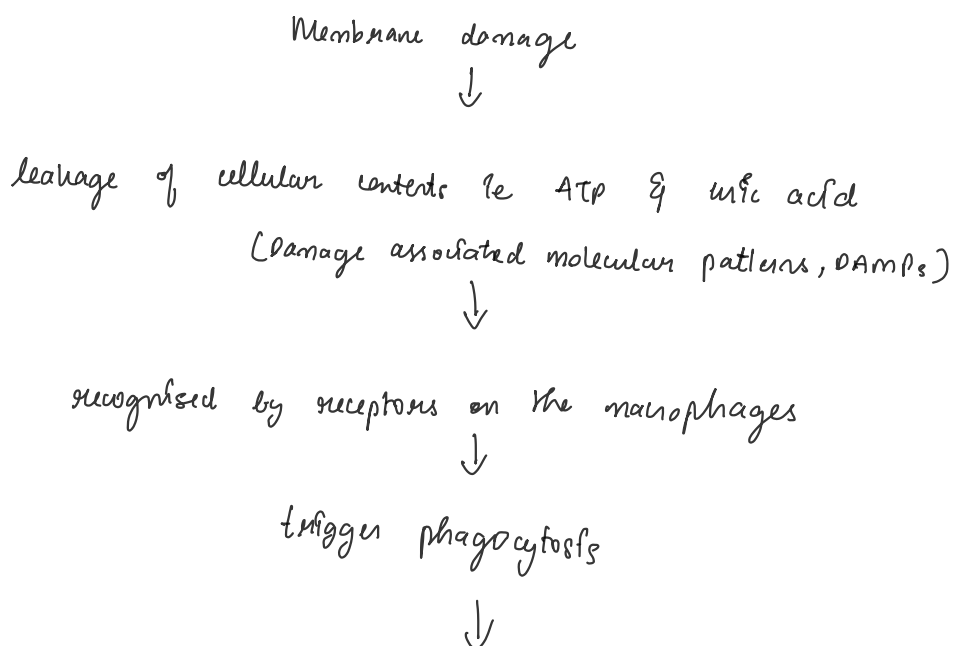 Membrane damage
↓
leakage of cellular contents ie ATP & uric acid
(Damage associated molecular patterns, DAMPs)
↓
recognised by receptors on the macrophages
↓
trigger phagocytosis
↓